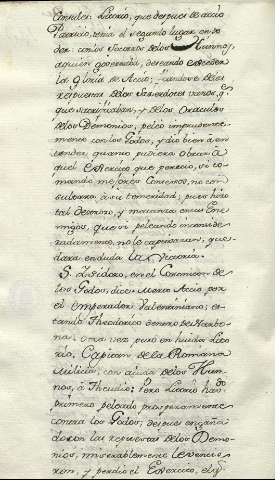 Consules. Litorio, que despues de Accio
Patricio, tenia el segundo lugar, on so
dor. con los Socorros de los Hunnos,
aquien governaba, deseando exceder
la gloria de Accio; fiandose de las
respuestas de los Sacerdotes vanos, q.
que sacrificaban, y de los Oraculos
de los Demonios, peleó imprudente
mente con los Godos, y dio bien à en
tender, quanto pudiera obrar a
quel Exercito que pereció, si co
mando mejores Consexos, no con
sultara a su temeridad; pues hizo
tal destrozo, y matanza en los Ene
migos, que si peleando inconside
radamente, no le captivaran, que
dara en duda la Victoria.
S. Isidoro, en el Coronicon de
los Godos, dice: Marco Accio, por
el emperador Valentiniano, es
tando Theodorico dentro de Narbo
na, otra vez puso en huida Lito
rio, Capitan de la Romana
Milicia, con ajuda de los Hun
nos, à Theudio: Pero Litorio hav.do
primero peleado prosperamente
contra los Godos, despues engaña
do con las repuestas de los Demo
nios, miserablemente le vencie
ron, y perdio el Exercito, el q.